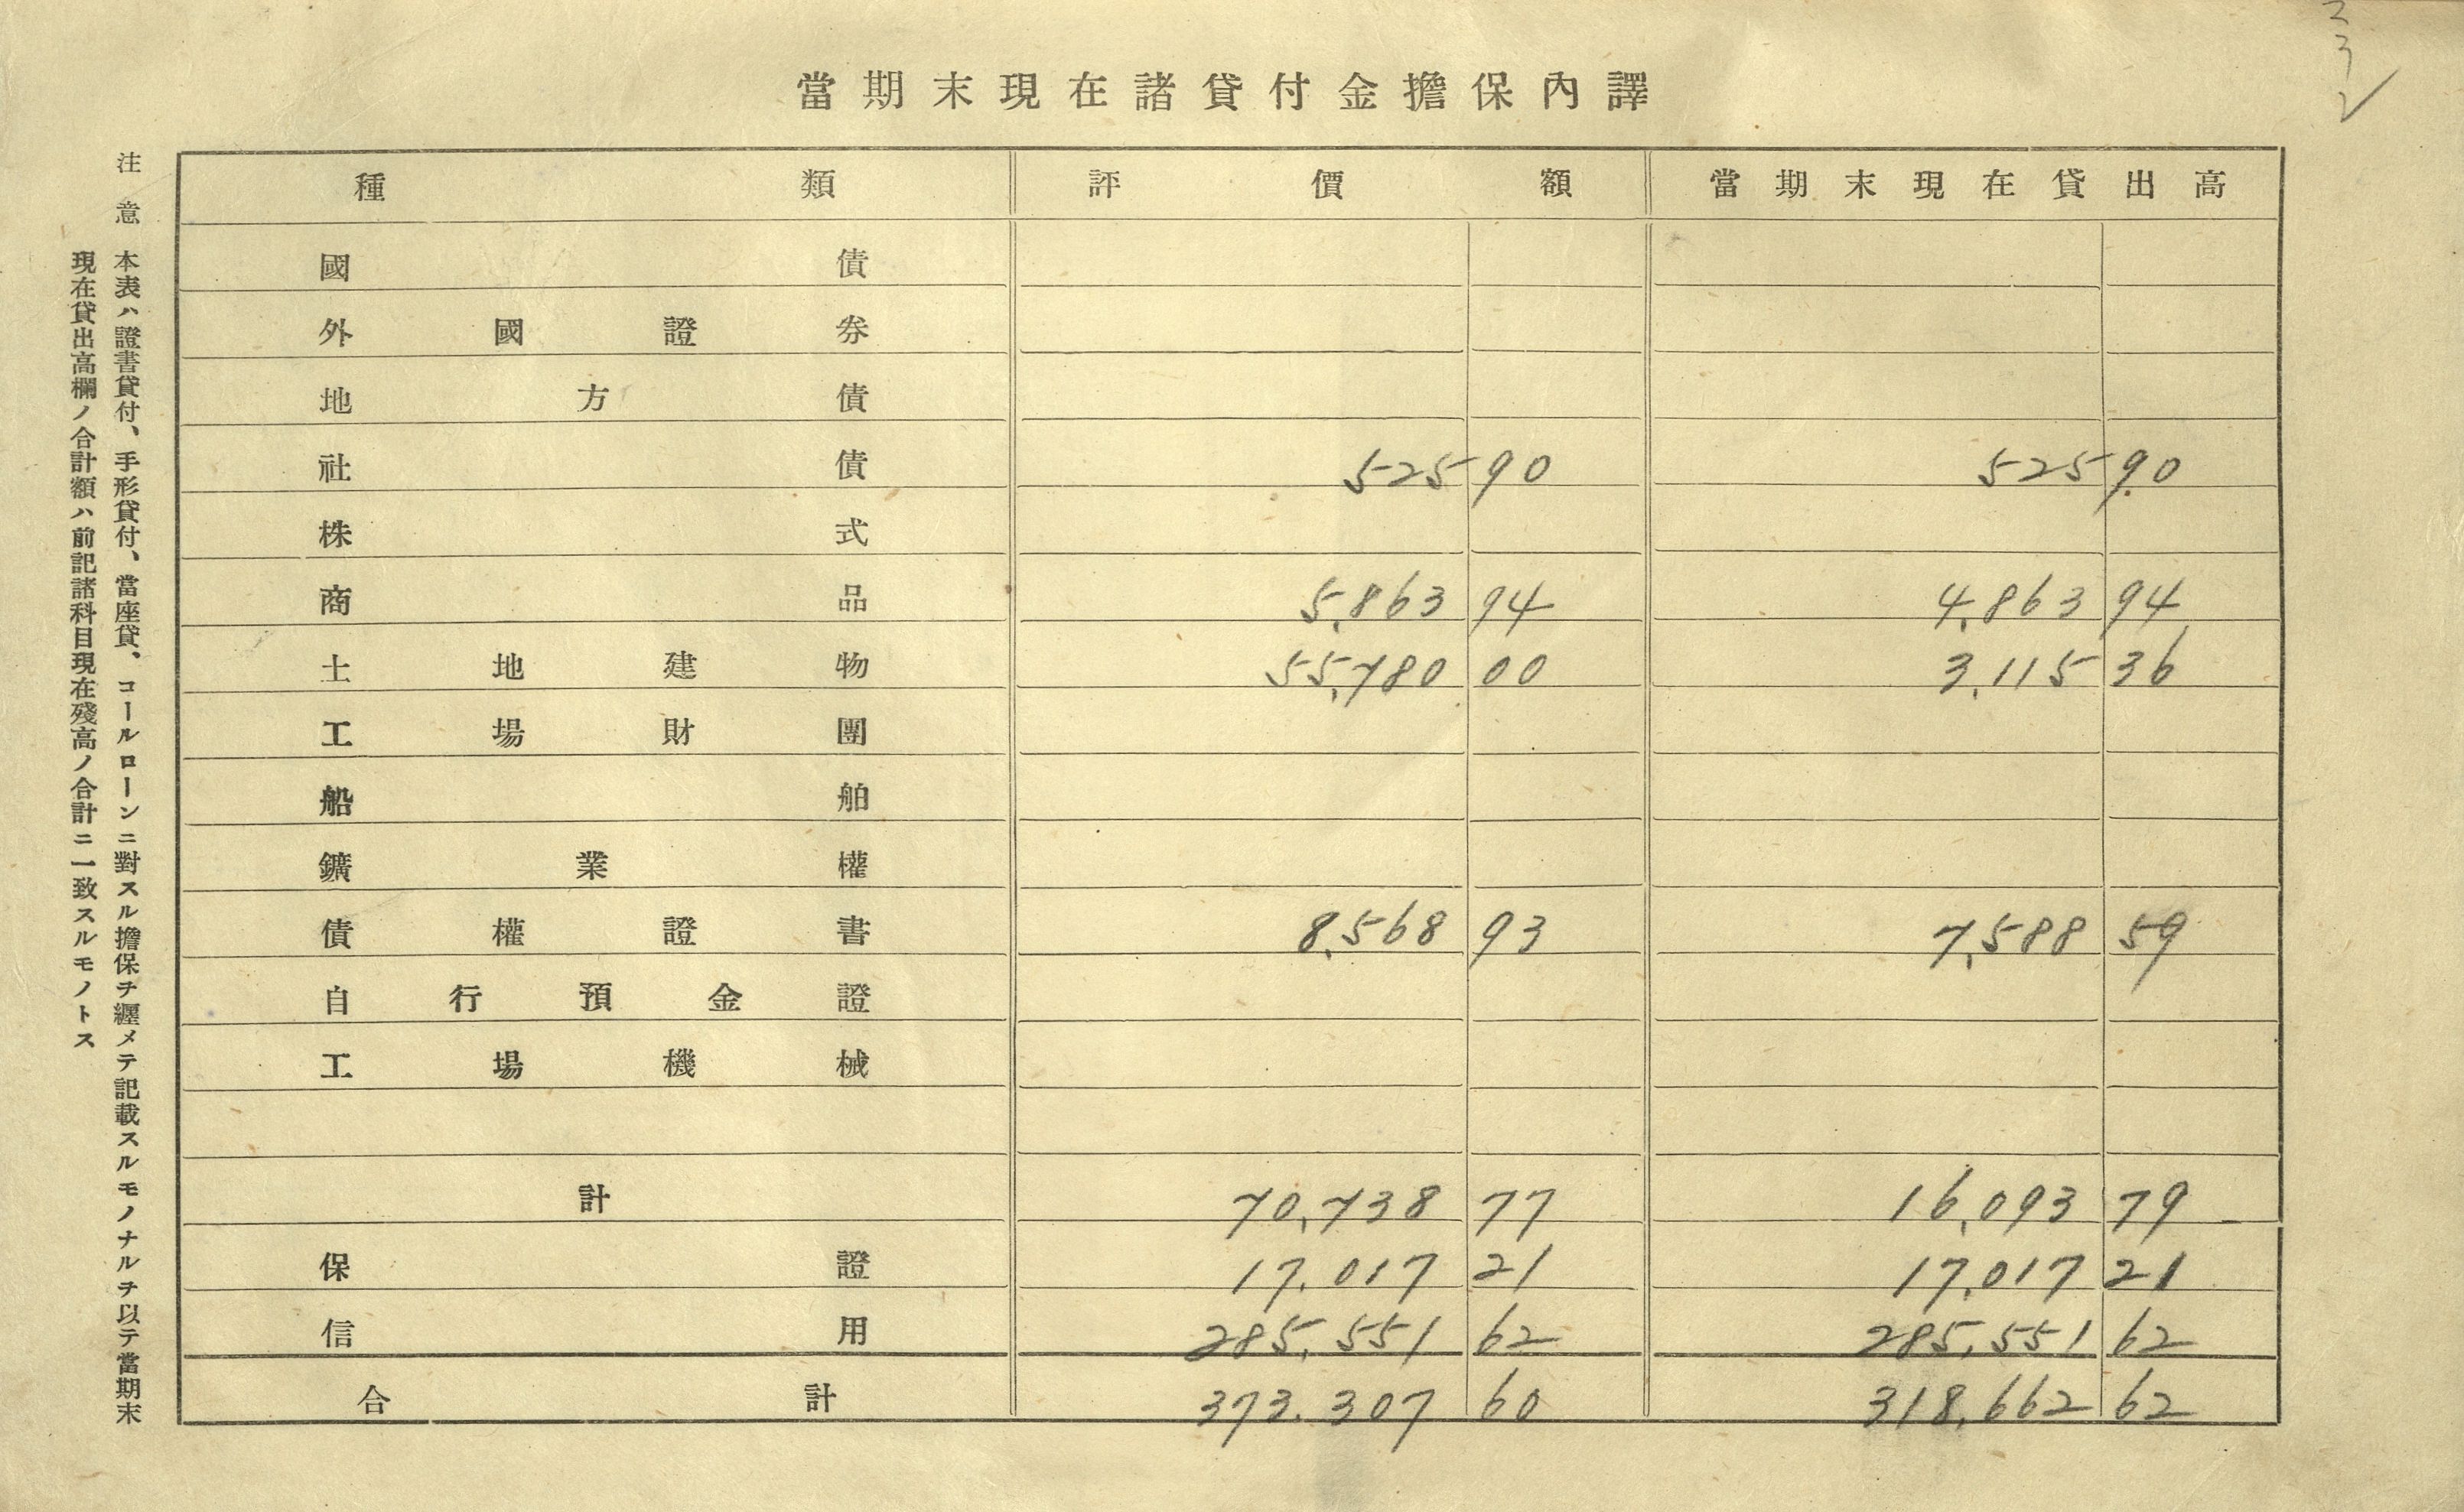 當期末現在諸貸付金擔保內譯
種類 評價額 當期末現在貸出高
國債
外國證券
地方債
社債 525 90 525 90
株式
商品 5,863 94 4,863 94
土地建物 55,780 00 3,115 36
工場財團
船舶
鑛業權
債權證書 8,568 93 7,588 59
自行預金證
工場機械
計 70,738 77 16,093 79
保證 17,017 21 17,017 21
信用 285,551 62 285,551 62
合計 373.307 60 318,662 62
注意 本表ハ證書貸付、手形貸付、當座貸、コールローンニ對スル擔保ヲ纒メテ記載スルモノナルヲ以テ當期末
現在貸出高欄ノ合計額ハ前記諸科目現在殘高ノ合計ニ一致スルモノトス